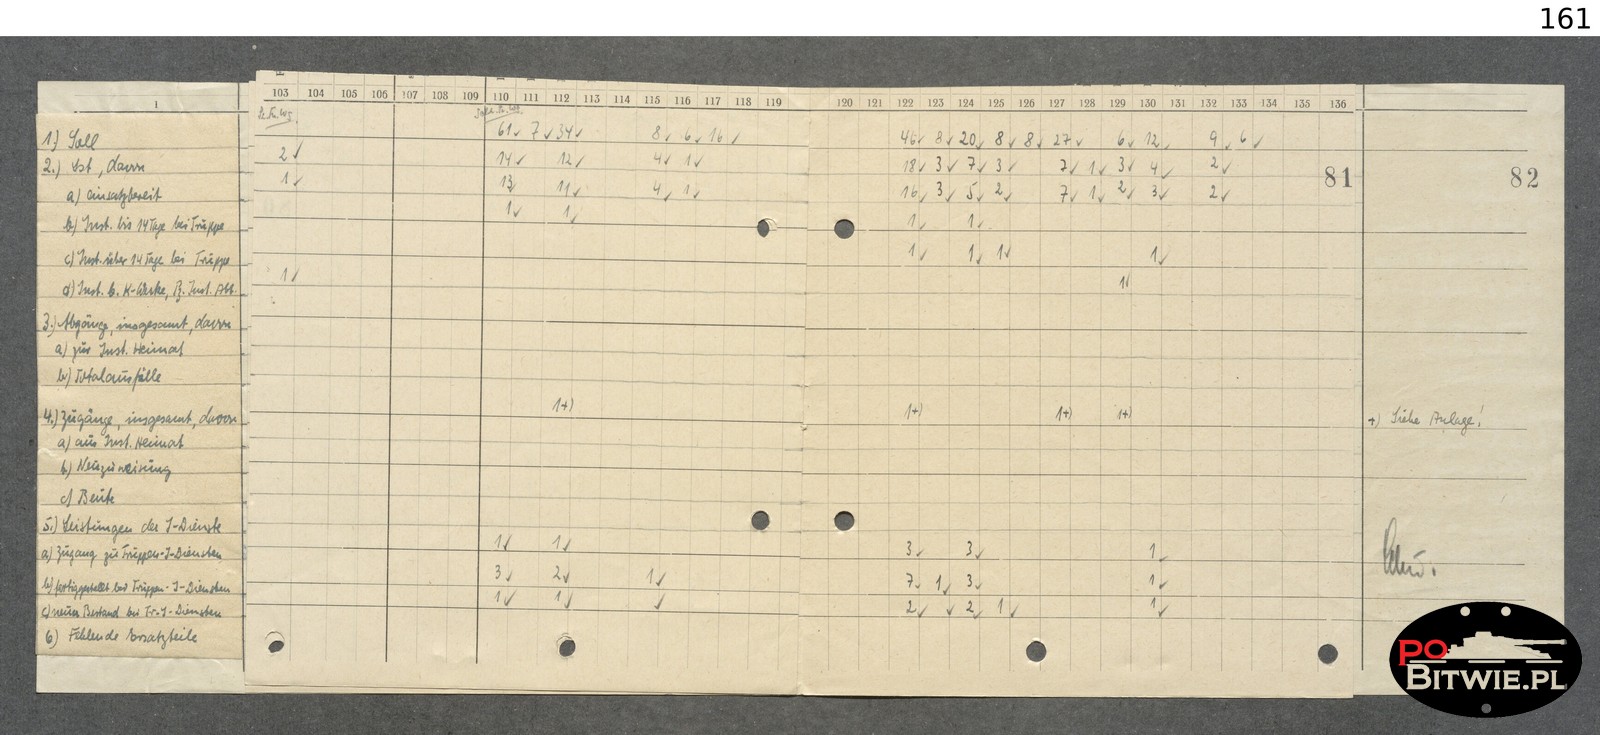 161
1
103 104 105 106 107 108 109 110 111 112 113 114 115 116 117 118 119 120 121 122 123 124 125 126 127 128 129 130 131 132 133 134 135 136
1.) Soll 61 7 34 8 6 16 46 8 20 8 8 27 6 12 9 6
2.) Ist, davon 2 14 12 4 1 18 3 7 3 7 1 3 4 2
81 82
a) einsatzbereit 1 13 11 4 1 16 3 5 2 7 1 2 3 2
b) Inst. bis 14 Tage bei Truppe 1 1 1 1
c) Inst. über 14 Tage bei Truppe 1 1 1 1
d) Inst. b. K-Werke, Pz. Inst. Abt. 1 1
3.) Abgänge, insgesamt, davon
a) zur Inst. Heimat
b) Totalausfälle
4.) Zugänge, insgesamt, davon 1+) 1+) 1+) 1+) +) Siehe Anlage!
a) aus Inst. Heimat
b) Neuzuweisung
c) Beute
5.) Leistungen der I-Dienste
a) Zugang zu Truppen-I-Diensten 1 1 3 3 1
b) fertiggestellt bei Truppen-I-Diensten 3 2 1 7 1 3 1
c) neuer Bestand bei Tr.-I-Diensten 1 1 2 2 1 1
6) Fehlende Ersatzteile
PO
BITWIE.PL